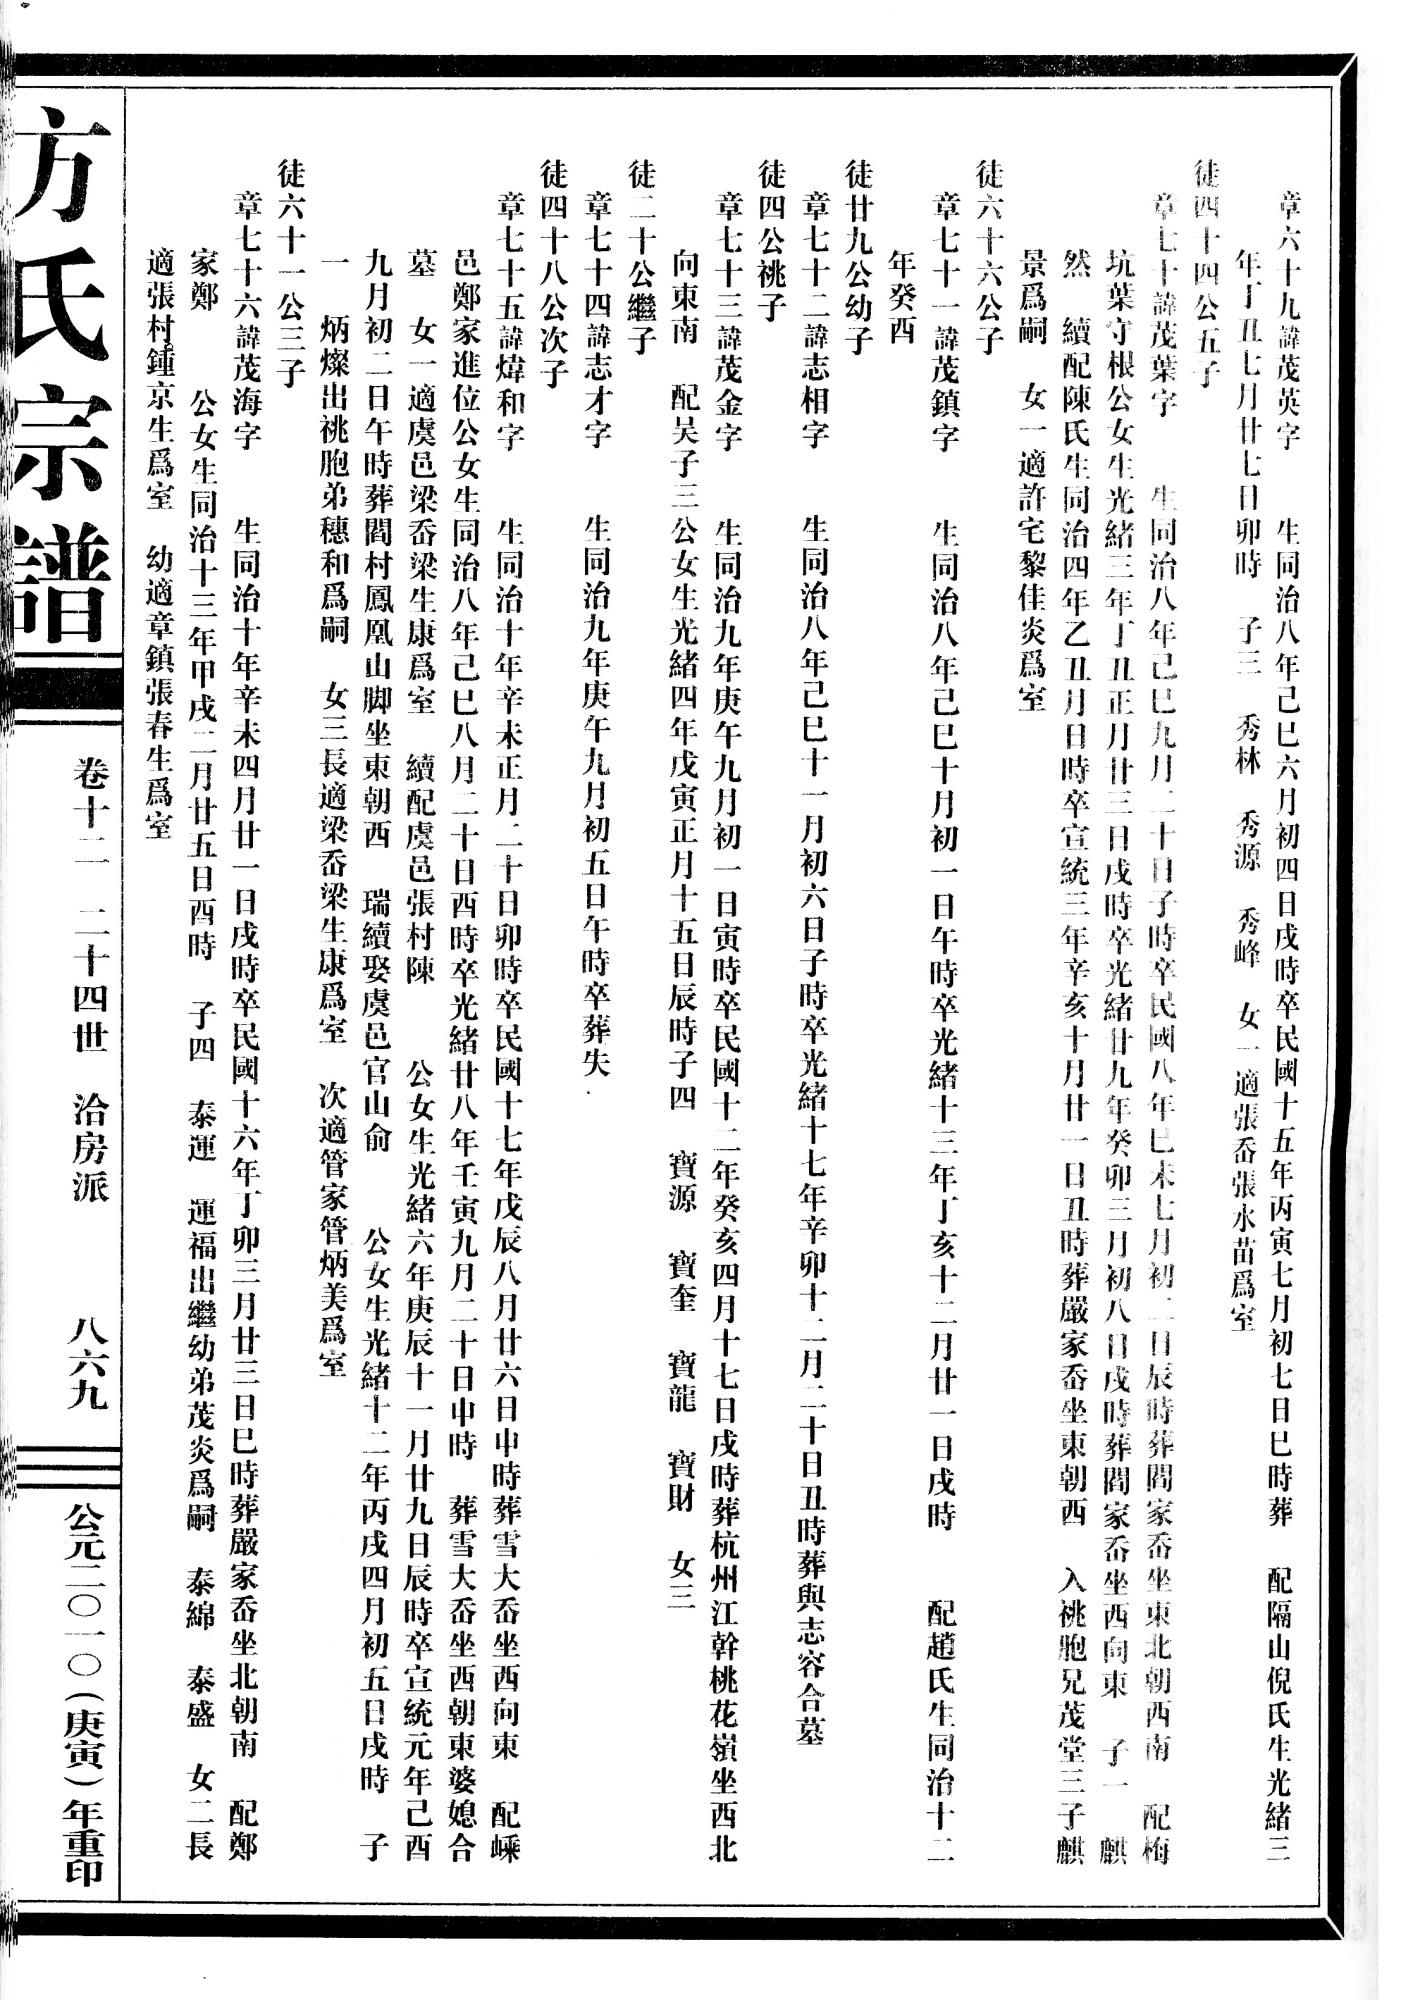 章六十九諱茂英字　生同治八年己巳六月初四日戌時卒民國十五年丙寅七月初七日巳時葬　配隔山倪氏生光緒三
年丁丑七月廿七日卯時　子三　秀林　秀源　秀峰　女一適張岙張水苗爲室
徒四十四公五子
章七十諱茂葉字　生同治八年己巳九月二十日子時卒民國八年己未七月初二日辰時葬閻家岙坐東北朝西南　配梅
坑葉守根公女生光緒三年丁丑正月廿三日戌時卒光緒廿九年癸卯三月初八日戌時葬閻家岙坐西向東　子一　麒
然　續配陳氏生同治四年乙丑月日時卒宣統三年辛亥十月廿一日丑時葬嚴家岙坐東朝西　入祧胞兄茂堂三子麒
景爲嗣　女一適許宅黎佳炎爲室
徒六十六公子
章七十一諱茂鎮字　生同治八年己巳十月初一日午時卒光緒十三年丁亥十二月廿一日戌時　配趙氏生同治十二
年癸酉
徒廿九公幼子
章七十二諱志相字　生同治八年己巳十一月初六日子時卒光緒十七年辛卯十二月二十日丑時葬與志容合墓
徒四公祧子
章七十三諱茂金字　生同治九年庚午九月初一日寅時卒民國十二年癸亥四月十七日戌時葬杭州江幹桃花嶺坐西北
向東南　配吴子三公女生光緒四年戊寅正月十五日辰時子四　寶源　寶奎　寶龍　寶財　女三
徒二十公繼子
章七十四諱志才字　生同治九年庚午九月初五日午時卒葬失
徒四十八公次子
章七十五諱煒和字　生同治十年辛未正月二十日卯時卒民國十七年戊辰八月廿六日申時葬雪大岙坐西向東　配嵊
邑鄭家進位公女生同治八年己巳八月二十日酉時卒光緒廿八年壬寅九月二十日申時　葬雪大岙坐西朝東婆媳合
墓　女一適虞邑梁岙梁生康爲室　續配虞邑張村陳　公女生光緒六年庚辰十一月廿九日辰時卒宣統元年己酉
九月初二日午時葬閻村鳳凰山脚坐東朝西　瑞續娶虞邑官山俞　公女生光緒十二年丙戌四月初五日戌時　子
一　炳燦出祧胞弟穗和爲嗣　女三長適梁岙梁生康爲室　次適管家管炳美爲室
徒六十一公三子
章七十六諱茂海字　生同治十年辛未四月廿一日戌時卒民國十六年丁卯三月廿三日巳時葬嚴家岙坐北朝南　配鄭
家鄭　公女生同治十三年甲戌二月廿五日酉時　子四　泰運　運福出繼幼弟茂炎爲嗣　泰綿　泰盛　女二長
適張村鍾京生爲室　幼適章鎮張春生爲室
方氏宗譜
卷十二　二十四世　治房派　八六九
公元二〇一〇（庚寅）年重印